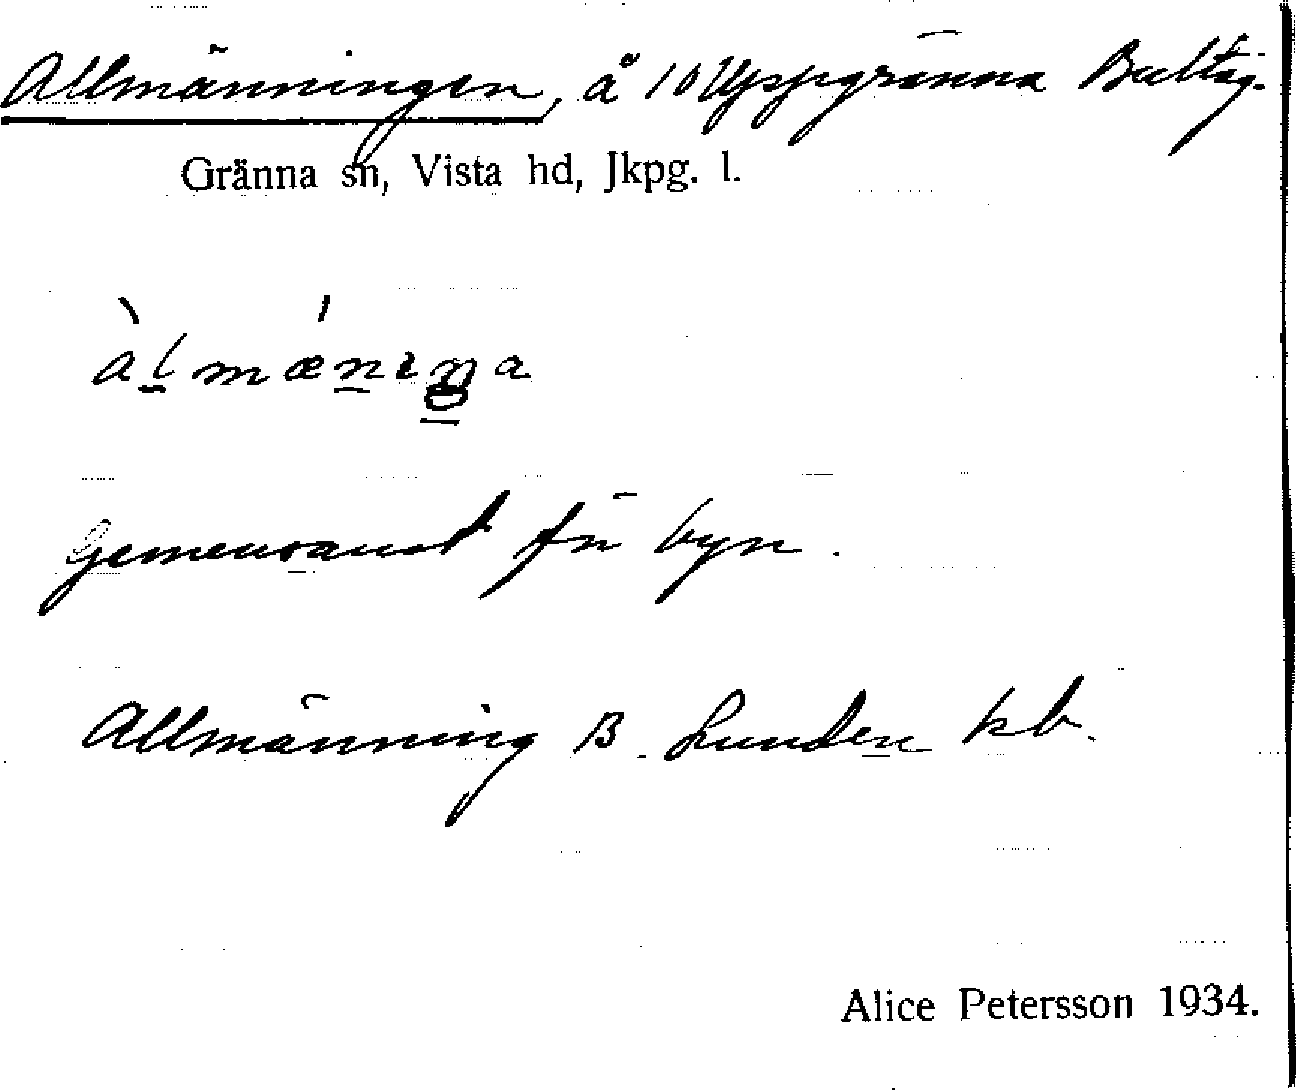 Allmänningen, å 10 Uppgränna Baltzg.
Gränna sn, Vista hd, Jkpg. l.
àlmǽniŋa
Gemensamt för byn.
Allmänning B. Lunden kb.
Alice Petersson 1934.